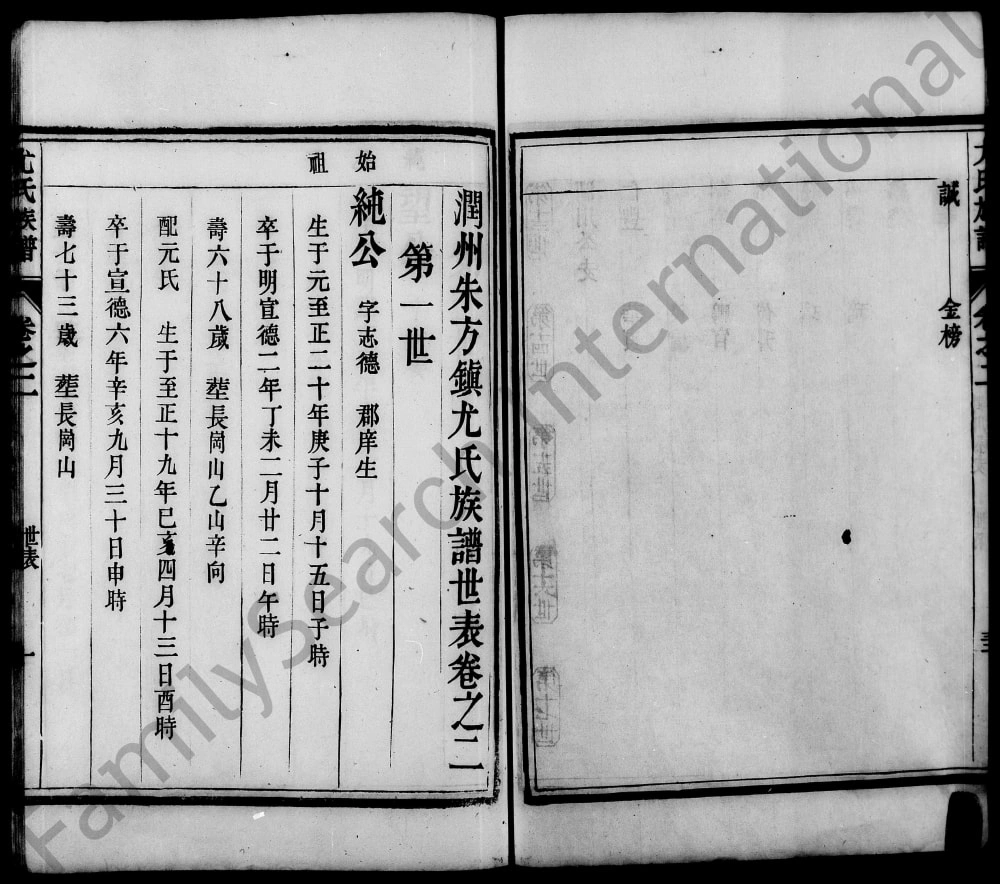 誠 金榜
潤州朱方鎮尤氏族譜世表卷之二
第一世
始祖
純公 字志德 郡庠生
生于元至正二十年庚子十月十五日子時
卒于明宣德二年丁未二月廿二日午時
壽六十八歲 塟長崗山乙山辛向
配元氏 生于至正十九年巳亥四月十三日酉時
卒于宣德六年辛亥九月三十日申時
壽七十三歲 塟長崗山
尤氏族譜 卷之二 世表 一
FamilySearch International